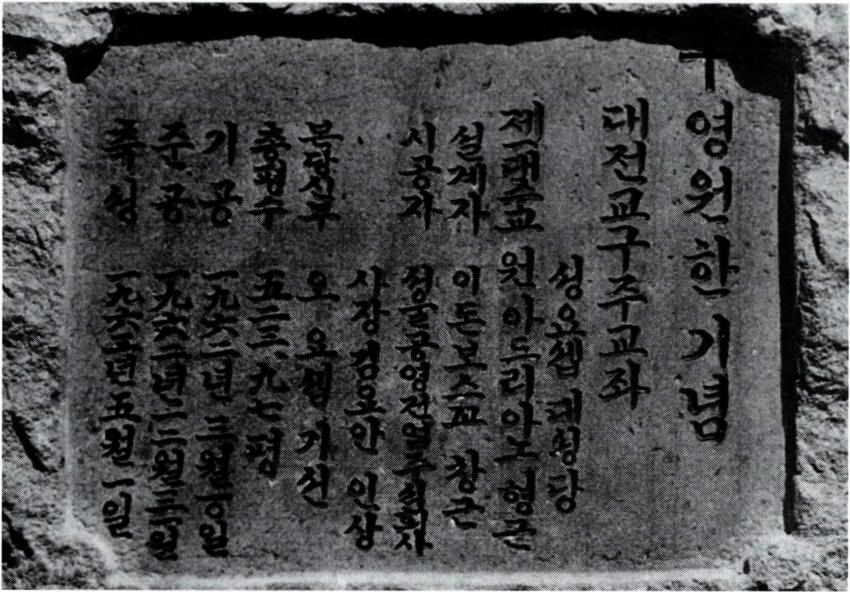 ✝ 영원한 기념
대전교구 주교좌
성요셉 대성당
제一대주교 원 아드리아노 형근
설계자 이돈보스꼬 창근
시공자
사장 김요안 인상
본당신부 오 요셉 기선
총평수 五二三、九七 평
기공 一九六二년 三월一〇일
준공 一九六二년 一二월
축성 五월 一일